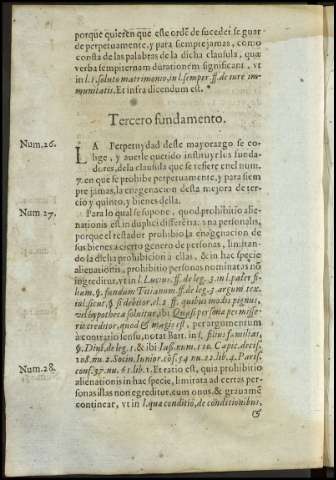 porque quieren que este ordẽ de suceder se guar
de perpetuamente, y para siempre jamas, como
consta de las palabras de la dicha clausula, quæ
verba sempiternam durationem significant, vt
in l. 1. soluto matrimonio, in l. semper ff. de iure im-
munitatis. Et infra dicendum est.
Tercero fundamento.
Num. 26.
LA Perpetuydad deste mayorazgo se co-
lige, y auerle querido instituyr los funda-
dores, de la clausula que se refiere en el num.
7. en que se prohibe perpetuamente, y para siem
pre jamas, la enagenacion desta mejora de ter-
cio y quinto, y bienes della.
Num 27.
Para lo qual se supone, quod prohibitio alie-
nationis est in duplici differẽtia: vna personalis,
porque el testador prohibio la enagenacion de
sus bienes a cierto genero de personas, limitan-
do la dicha prohibicion a ellas, & in hac specie
alienationis, prohibitio personas nominatas nõ
ingreditur, vt in l. Lucius. ff. de leg. 2. in l. pater fi-
lium. §. fundum Titianum. ff. de leg. 3. argum. tex.
iul. sicut, §. si debitor. al. 2 ff. quibus modis pignus,
vel hypotheca soluitur, ibi Quasi persona per misse-
rit creditor, quod & magis est, per argumentum
a contrario sensu, notat Bart. in l. filius familias,
§. Diui. de leg. 1. & ibi Iaß. num. 120. Capic. decis.
128. nu. 2. Socin. Iunior. cõs. 54 nu. 22. lib. 4. Paris.
cons. 37. nu. 61. lib. 1. Et ratio est, quia prohibitio
Num. 28.
alienationis in hac specie, limitata ad certas per-
sonas illas non egreditur, cum onus, & grauamẽ
contineat, vt in l. qua conditio, de conditionibus,
&